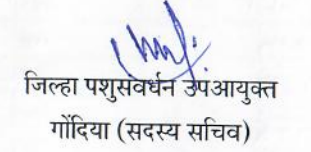 जिल्हा पशुसंवर्धन उपआयुक्त
गोंदिया (सदस्य सचिव)